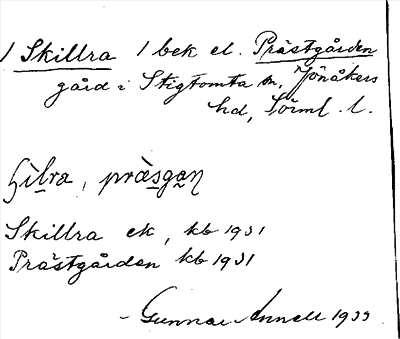 1 Skillra 1 bek el. Prästgården
gård i Stigtomta sn, Jönåkers
hd, Sörml. l.
präsgan
Skillra ek, kb 1931
Prästgården kb 1931
Gunnar Annell 1933